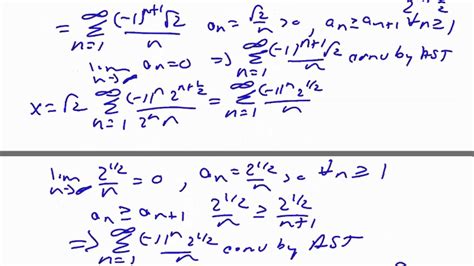 = ∑_{n=1}^{∞} (-1)^{n+1}√2 / n   a_n = √2/n > 0, a_n ≥ a_{n+1} ∀n ≥ 1
lim_{n→∞} a_n = 0 ⇒ ∑_{n=1}^{∞} (-1)^{n+1}√2 / n conv by AST
x = √2 ∑_{n=1}^{∞} (-1)^n 2^{n+1/2} / 2^n n = ∑_{n=1}^{∞} (-1)^n 2^{1/2} / n
lim_{n→∞} 2^{1/2}/n = 0, a_n = 2^{1/2}/n > 0 ∀n ≥ 1
a_n ≥ a_{n+1}   2^{1/2}/n ≥ 2^{1/2}/n+1
⇒ ∑_{n=1}^{∞} (-1)^n 2^{1/2} / n conv by AST